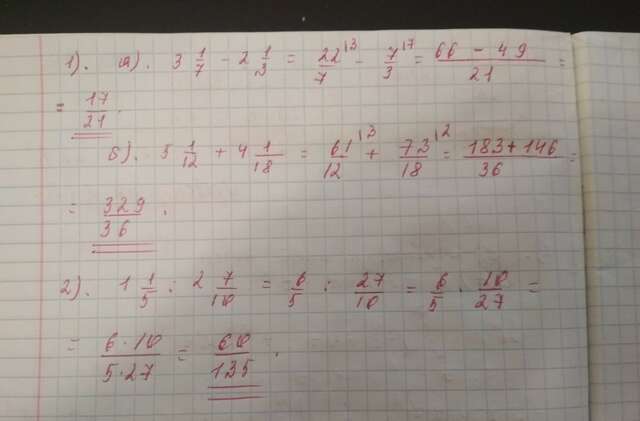 1). а). 3 1/7 - 2 1/3 = 22/7 |3 - 7/3 |7 = 66 - 49/21 =
= 17/21 .
б). 5 1/12 + 4 1/18 = 61/12 |3 + 73/18 |2 = 183 + 146/36 =
= 329/36 .
2). 1 1/5 : 2 7/10 = 6/5 : 27/10 = 6/5 · 10/27 =
= 6·10/5·27 = 60/135 .